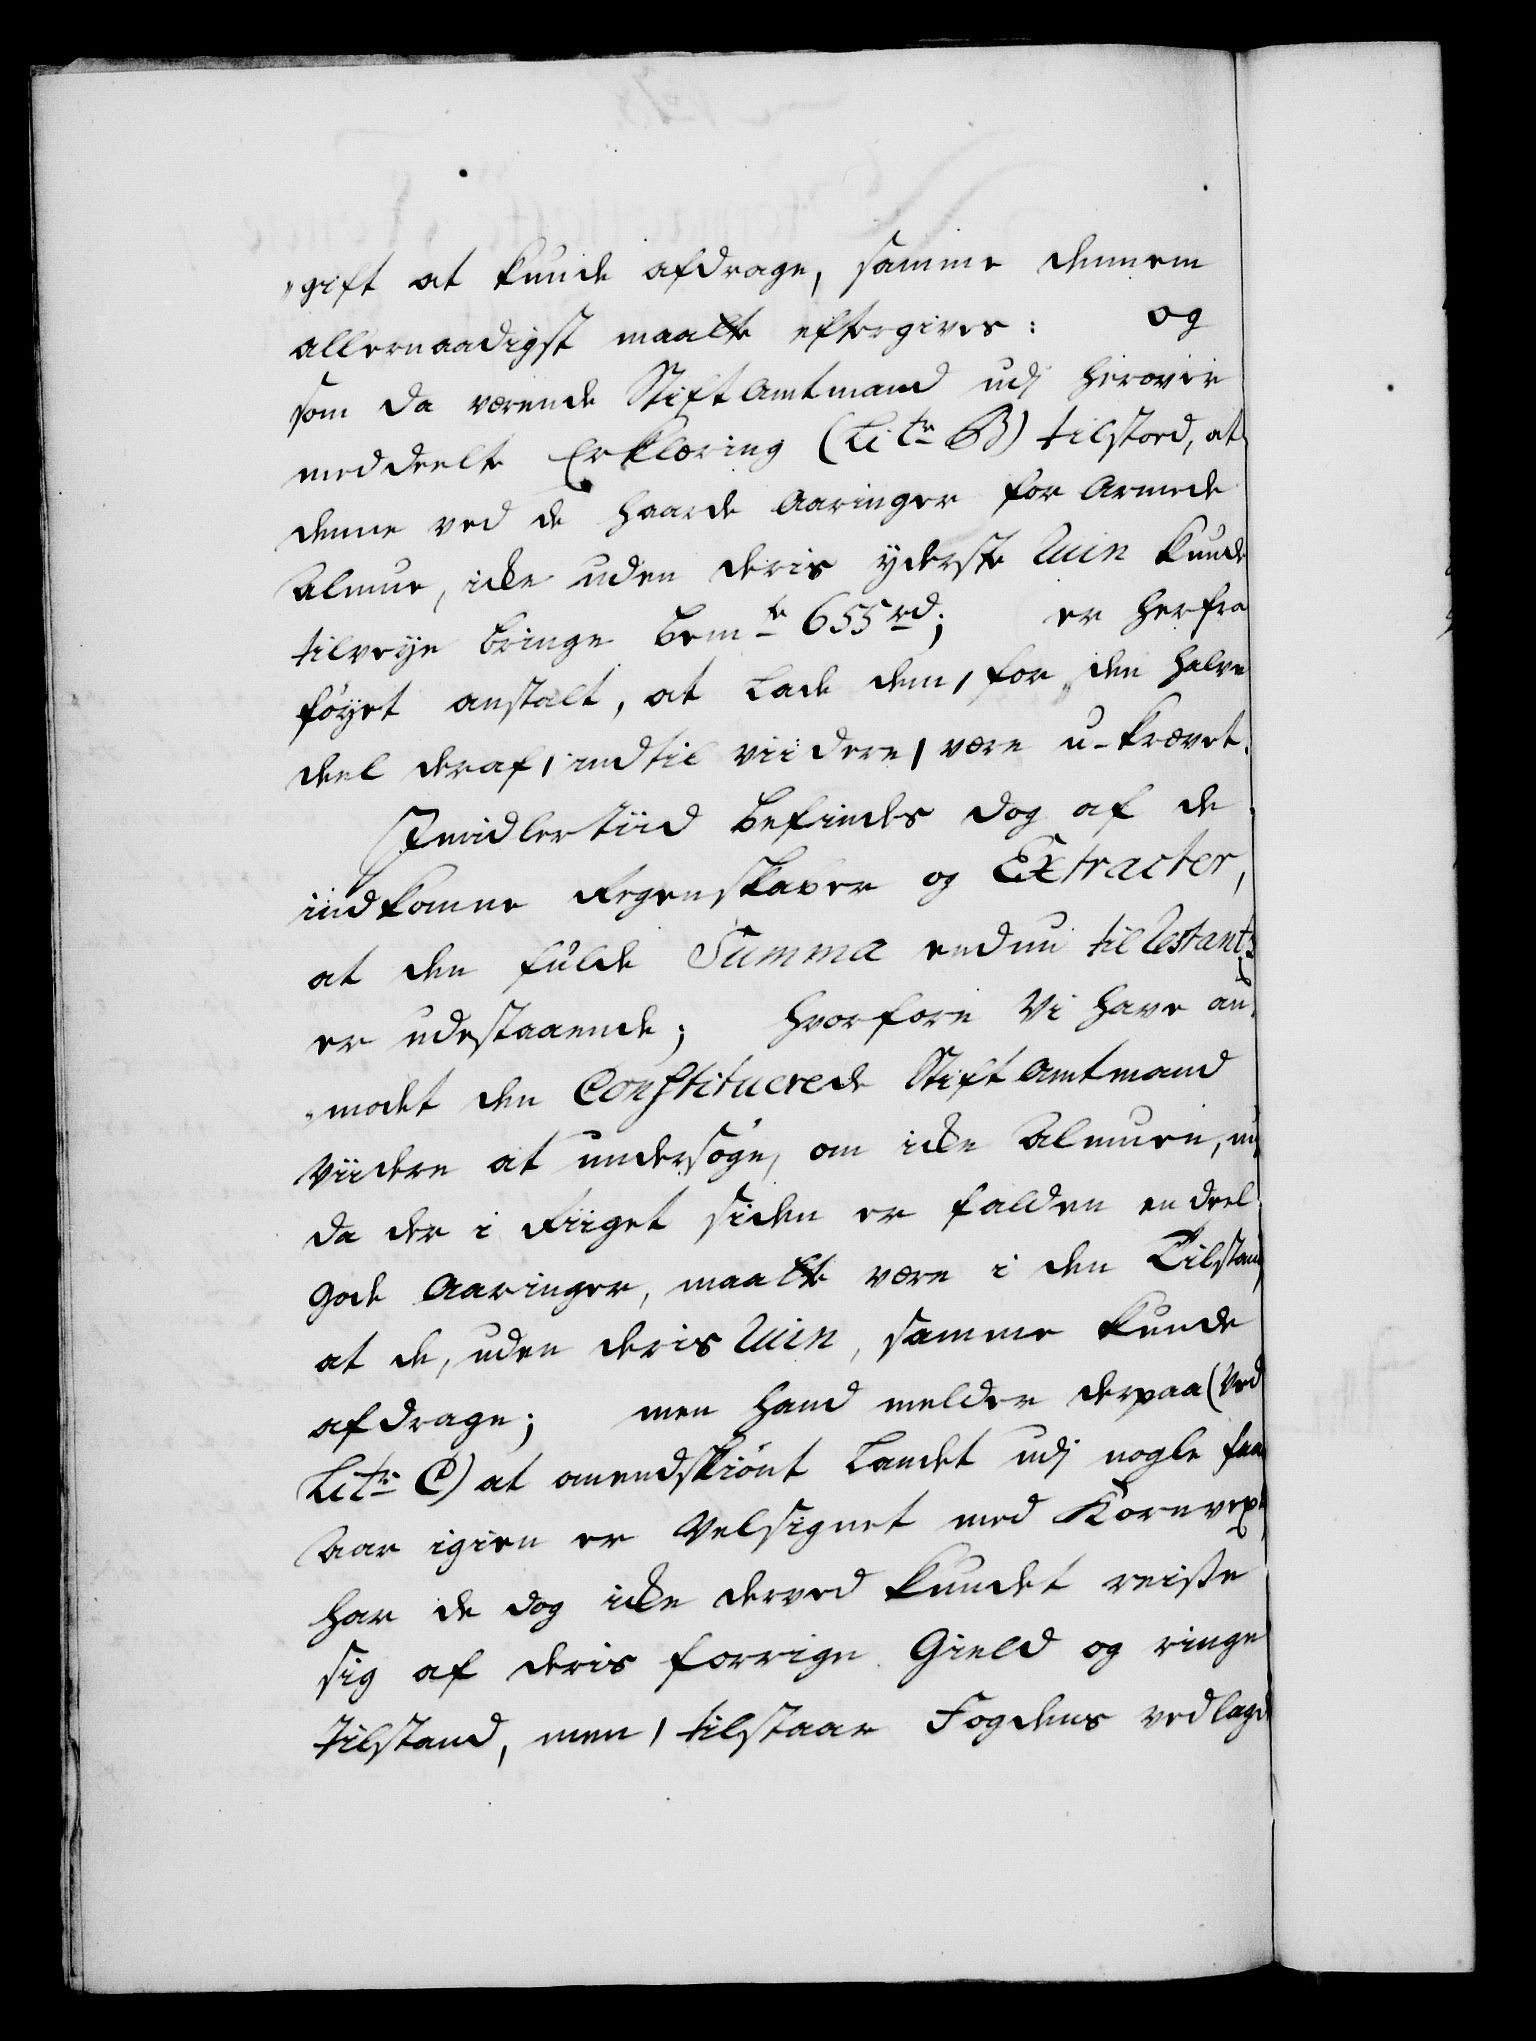 „gift at kunde afdrage, samme dennem
allernaadigst maatte eftergives: og
som da værende Stift Amtmand udj herover
meddeelte Erklæring (Litr B) tilstoed, at
denne ved de haarde Aaringer for Armede
Almue, icke uden deris yderste Ruin kunde
tilveye bringe bemte 655 rd; er herfra
föyet anstalt, at lade dem, for den halve
deel deraf, indtil viidere, være u-krævet.
Jmidlertiid befindes dog af de
indkomne Regenskaber og Extracter,
at den fulde Summa endnu til Restants
er udestaaende; hvorfore Vi have an-
„modet den Constituerede Stift Amtmand
viidere at undersöge, om icke Almuen, nu,
da der i Riiget siden er falden en deel
gode Aaringer, maatte være i den Tilstand,
at de, uden deris Ruin, samme kunde
afdrage; men hand melder derpaa (Ved
Litr C) at omendskiönt Landet udj nogle faae
Aar igien er Velsignet med Kornvext,
har de dog icke derved kundet reise
sig af deris forrige Gield og ringe
tilstand, men, tilstaar Fogdens vedlagde